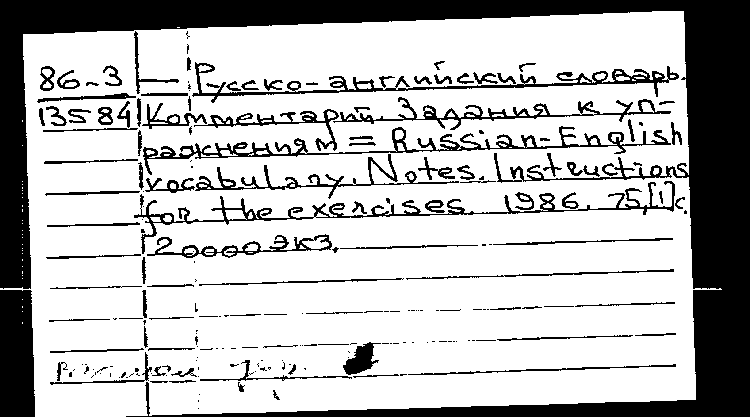 86-3 — Русско-английский словарь.
13584 Комментарий. Задания к уп=
ражнениям = Russian-English
vocabulary. Notes. Instructions
for the exercises. 1986. 75,[1]с.
20000 экз.